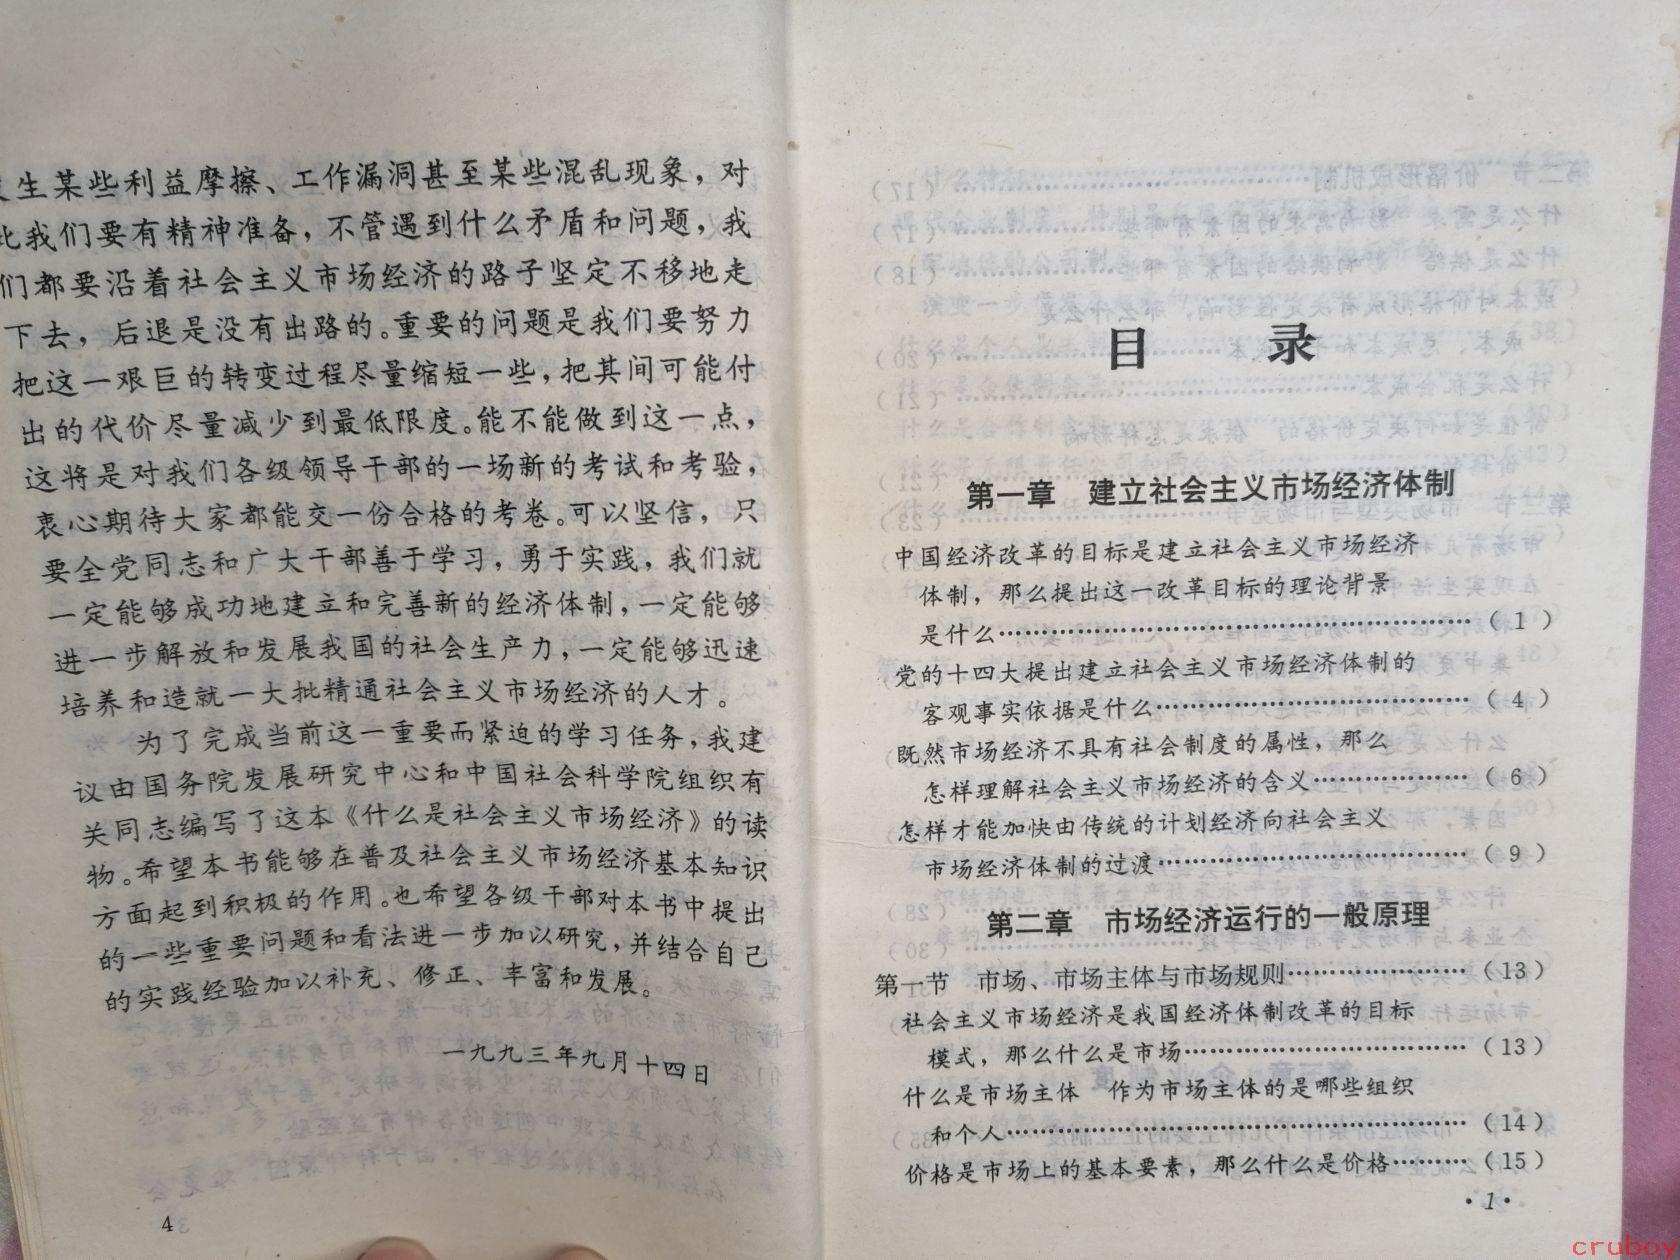 生某些利益摩擦、工作漏洞甚至某些混乱现象，对
此我们要有精神准备，不管遇到什么矛盾和问题，我
们都要沿着社会主义市场经济的路子坚定不移地走
下去，后退是没有出路的。重要的问题是我们要努力
把这一艰巨的转变过程尽量缩短一些，把其间可能付
出的代价尽量减少到最低限度。能不能做到这一点，
这将是对我们各级领导干部的一场新的考试和考验，
衷心期待大家都能交一份合格的考卷。可以坚信，只
要全党同志和广大干部善于学习，勇于实践，我们就
一定能够成功地建立和完善新的经济体制，一定能够
进一步解放和发展我国的社会生产力，一定能够迅速
培养和造就一大批精通社会主义市场经济的人才。
为了完成当前这一重要而紧迫的学习任务，我建
议由国务院发展研究中心和中国社会科学院组织有
关同志编写了这本《什么是社会主义市场经济》的读
物。希望本书能够在普及社会主义市场经济基本知识
方面起到积极的作用。也希望各级干部对本书中提出
的一些重要问题和看法进一步加以研究，并结合自己
的实践经验加以补充、修正、丰富和发展。
一九九三年九月十四日
4
目 录
第一章 建立社会主义市场经济体制
中国经济改革的目标是建立社会主义市场经济
体制，那么提出这一改革目标的理论背景
是什么……………………………………………（1）
党的十四大提出建立社会主义市场经济体制的
客观事实依据是什么……………………………（4）
既然市场经济不具有社会制度的属性，那么
怎样理解社会主义市场经济的含义………………（6）
怎样才能加快由传统的计划经济向社会主义
市场经济体制的过渡……………………………（9）
第二章 市场经济运行的一般原理
第一节 市场、市场主体与市场规则…………………（13）
社会主义市场经济是我国经济体制改革的目标
模式，那么什么是市场…………………………（13）
什么是市场主体 作为市场主体的是哪些组织
和个人……………………………………………（14）
价格是市场上的基本要素，那么什么是价格………（15）
·1·
cruboy